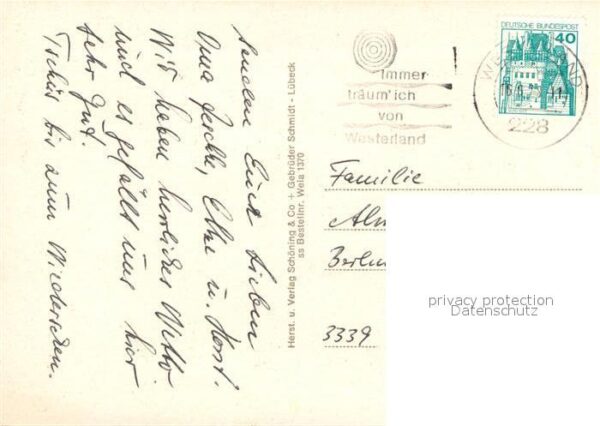 senden Euch lieben
Oma Gesche, Elke u. Horst.
Wir haben herrliches Wetter
und es gefällt uns hier
sehr gut.
Tschüs bis zum Wiedersehen.
Herst. u. Verlag Schöning & Co + Gebrüder Schmidt - Lübeck
ss Bestellnr. Wela 1370
Immer
träum' ich
von
Westerland
!
DEUTSCHE BUNDESPOST
40
228
Familie
Berlin
3339
privacy protection
Datenschutz